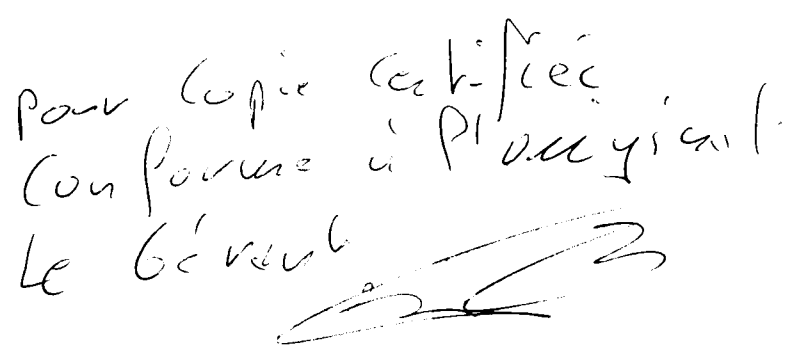 Pour Copie Certifiée
Conforme à l'original
Le Gérant